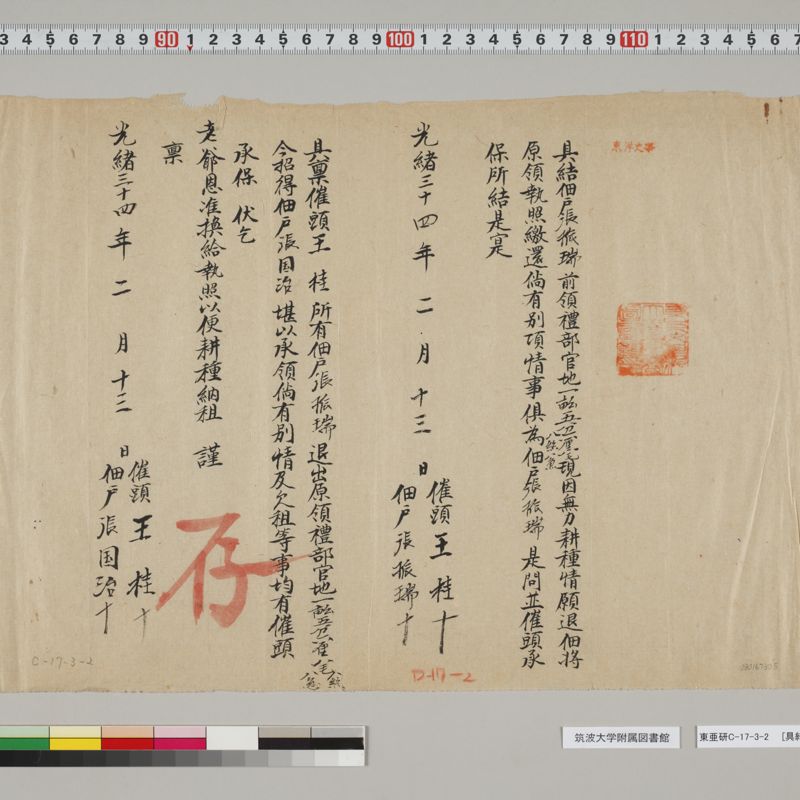 具結佃戶張振瑞前領禮部官地一畝五分厘毛現因無力耕種情願退佃將
絲忽
原領執照繳還倘有別項情事俱為佃戶張振瑞是問並催頭承
保所結是寔
光緒三十四年 二 月 十三 日
催頭 王 桂 十
佃戶 張振瑞 十
具稟催頭王 桂 所有佃戶張振瑞退出原領禮部官地一畝五分厘毫
絲忽
今招得佃戶張国治堪以承領倘有別情及欠租等事均有催頭
承保 伏乞
老爺恩准換給執照以便耕種納租 謹
稟
光緒三十四年 二 月 十三 日
催頭 王 桂 十
佃戶 張国治 十
存
C-17-3-2
D-17-2
筑波大学附属図書館
東亜研C-17-3-2 [具結
3 4 5 6 7 8 9 90 1 2 3 4 5 6 7 8 9 100 1 2 3 4 5 6 7 8 9 110 1 2 3 4 5 6 7